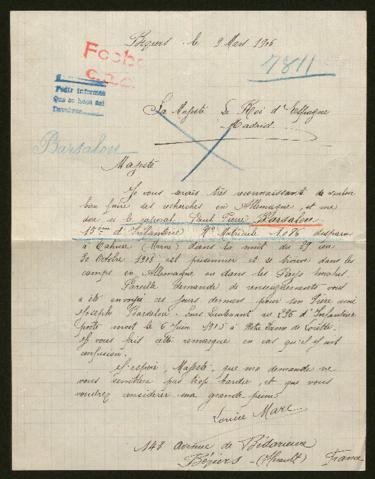 Béziers le 9 Mars 1916
7811
Pedir informes
Sa Majesté Le Roi d'Espagne
Madrid
Barsalou
Majesté
Je vous serais très reconnaissante de vouloir
bien faire des recherches en Allemagne, et me
dire si le caporal Paul Pierre Barsalou
15me d'Infanterie Nº Matricule 1086 disparu
à Tahure (Marne) dans la nuit du 29 au
30 Octobre 1915 est prisonnier et se trouve dans les
camps en Allemagne ou dans les Pays envahis
Pareille demande de renseignements vous
a été envoyée ces jours derniers pour son frère aîné
Joseph Barsalou Sous Lieutenant au 296 d'Infanterie
porté mort le 6 Juin 1915 à Notre Dame de Lorette.
Je vous fais cette remarque en cas qu'il y ait
confusion.
J'espère, Majesté, que ma demande ne
vous semblera pas trop hardie, et que vous
voudrez considérer ma grande peine
Louise Marc
148 avenue de Bédarieux
Béziers (Hérault) France